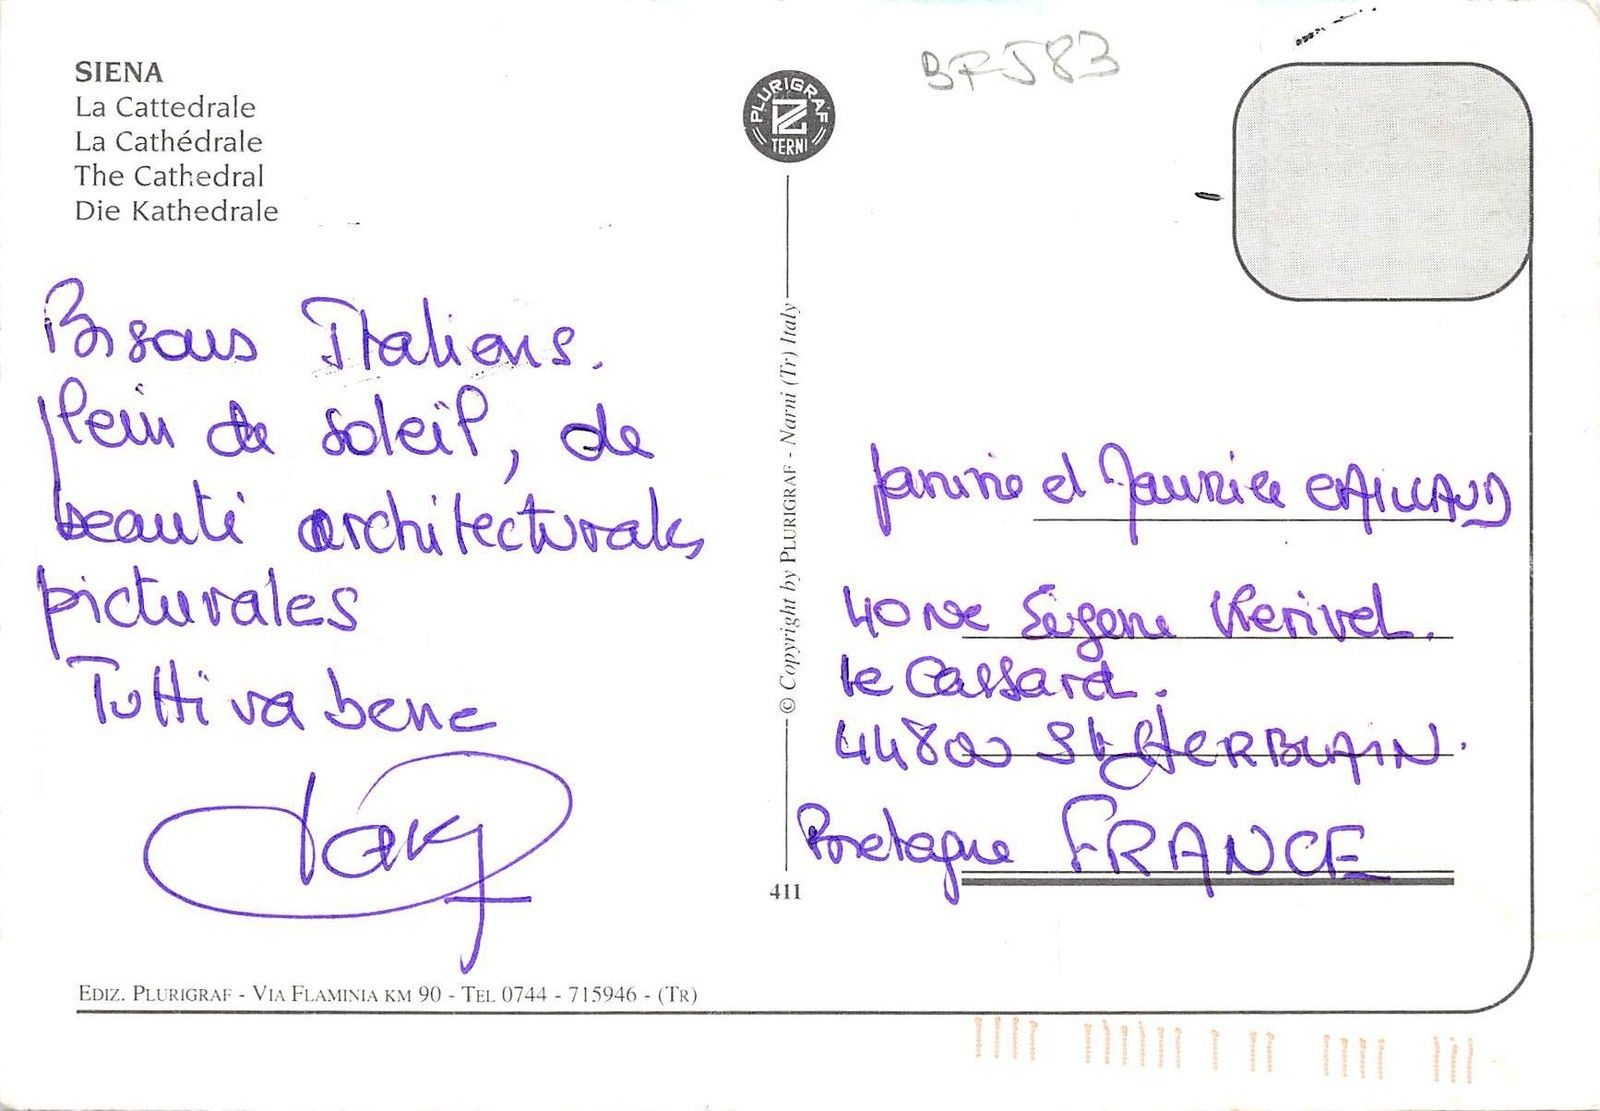 SIENA
La Cattedrale
La Cathédrale
The Cathedral
Die Kathedrale
PLURIGRAF
TERNI
BFJ583
Bisous Italiens.
plein de soleil, de
beauté architecturales
picturales
Tutti va bene
© Copyright by PLURIGRAF - Narni (Tr) Italy
411
Janine et Maurice CAILLAUD
40 rue Eugène
le Cassard.
44800 St HERBLAIN.
Bretagne FRANCE
EDIZ. PLURIGRAF - VIA FLAMINIA KM 90 - TEL 0744 - 715946 - (TR)